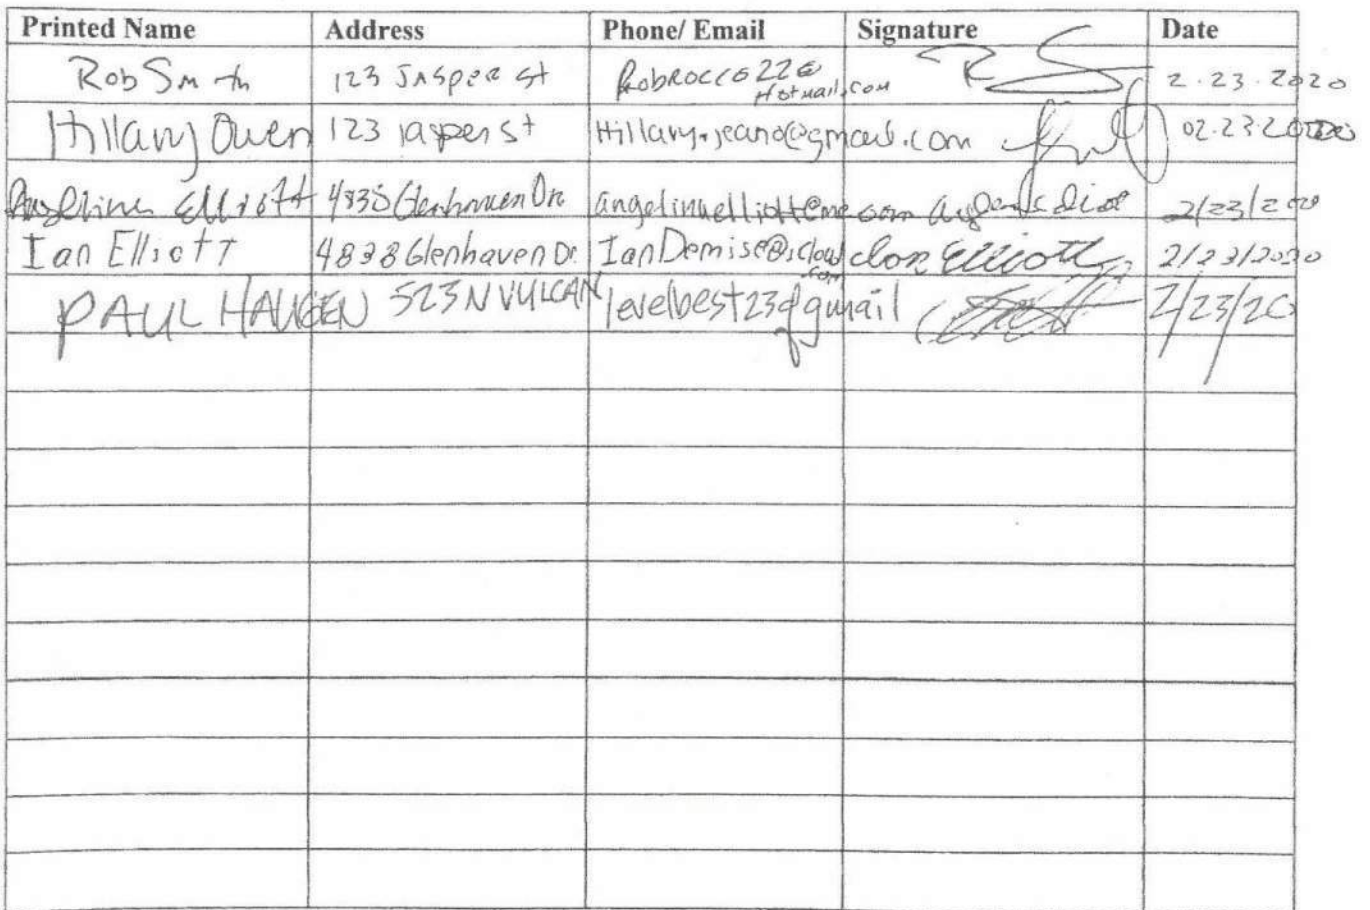 Printed Name Address Phone/ Email Signature Date
Rob Smith 123 Jasper st RobRocco22@ Hotmail.com RS 2.23.2020
Hillary Owen 123 jasper st Hillary.jeano@gmail.com 02.23.2020
Angelina Elliott Glenhaven Dr angelinaelliott@me.com 2/23/2020
Ian Elliott 4838 Glenhaven Dr. IanDemise@icloud.com Ian Elliott 2/23/2020
PAUL HAUGEN 523 N VULCAN levelbest23@gmail 2/23/20